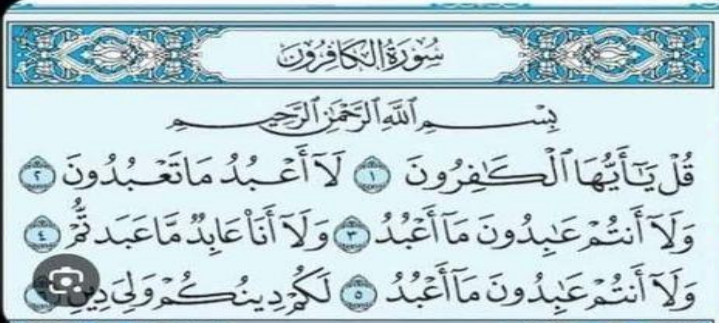 سُورَةُ الكَافِرُونَ
بِسْمِ ٱللَّهِ ٱلرَّحْمَٰنِ ٱلرَّحِيمِ
قُلْ يَٰٓأَيُّهَا ٱلْكَٰفِرُونَ ١ لَآ أَعْبُدُ مَا تَعْبُدُونَ ٢
وَلَآ أَنتُمْ عَٰبِدُونَ مَآ أَعْبُدُ ٣ وَلَآ أَنَا۠ عَابِدٌ مَّا عَبَدتُّمْ ٤
وَلَآ أَنتُمْ عَٰبِدُونَ مَآ أَعْبُدُ ٥ لَكُمْ دِينُكُمْ وَلِىَ دِينِ